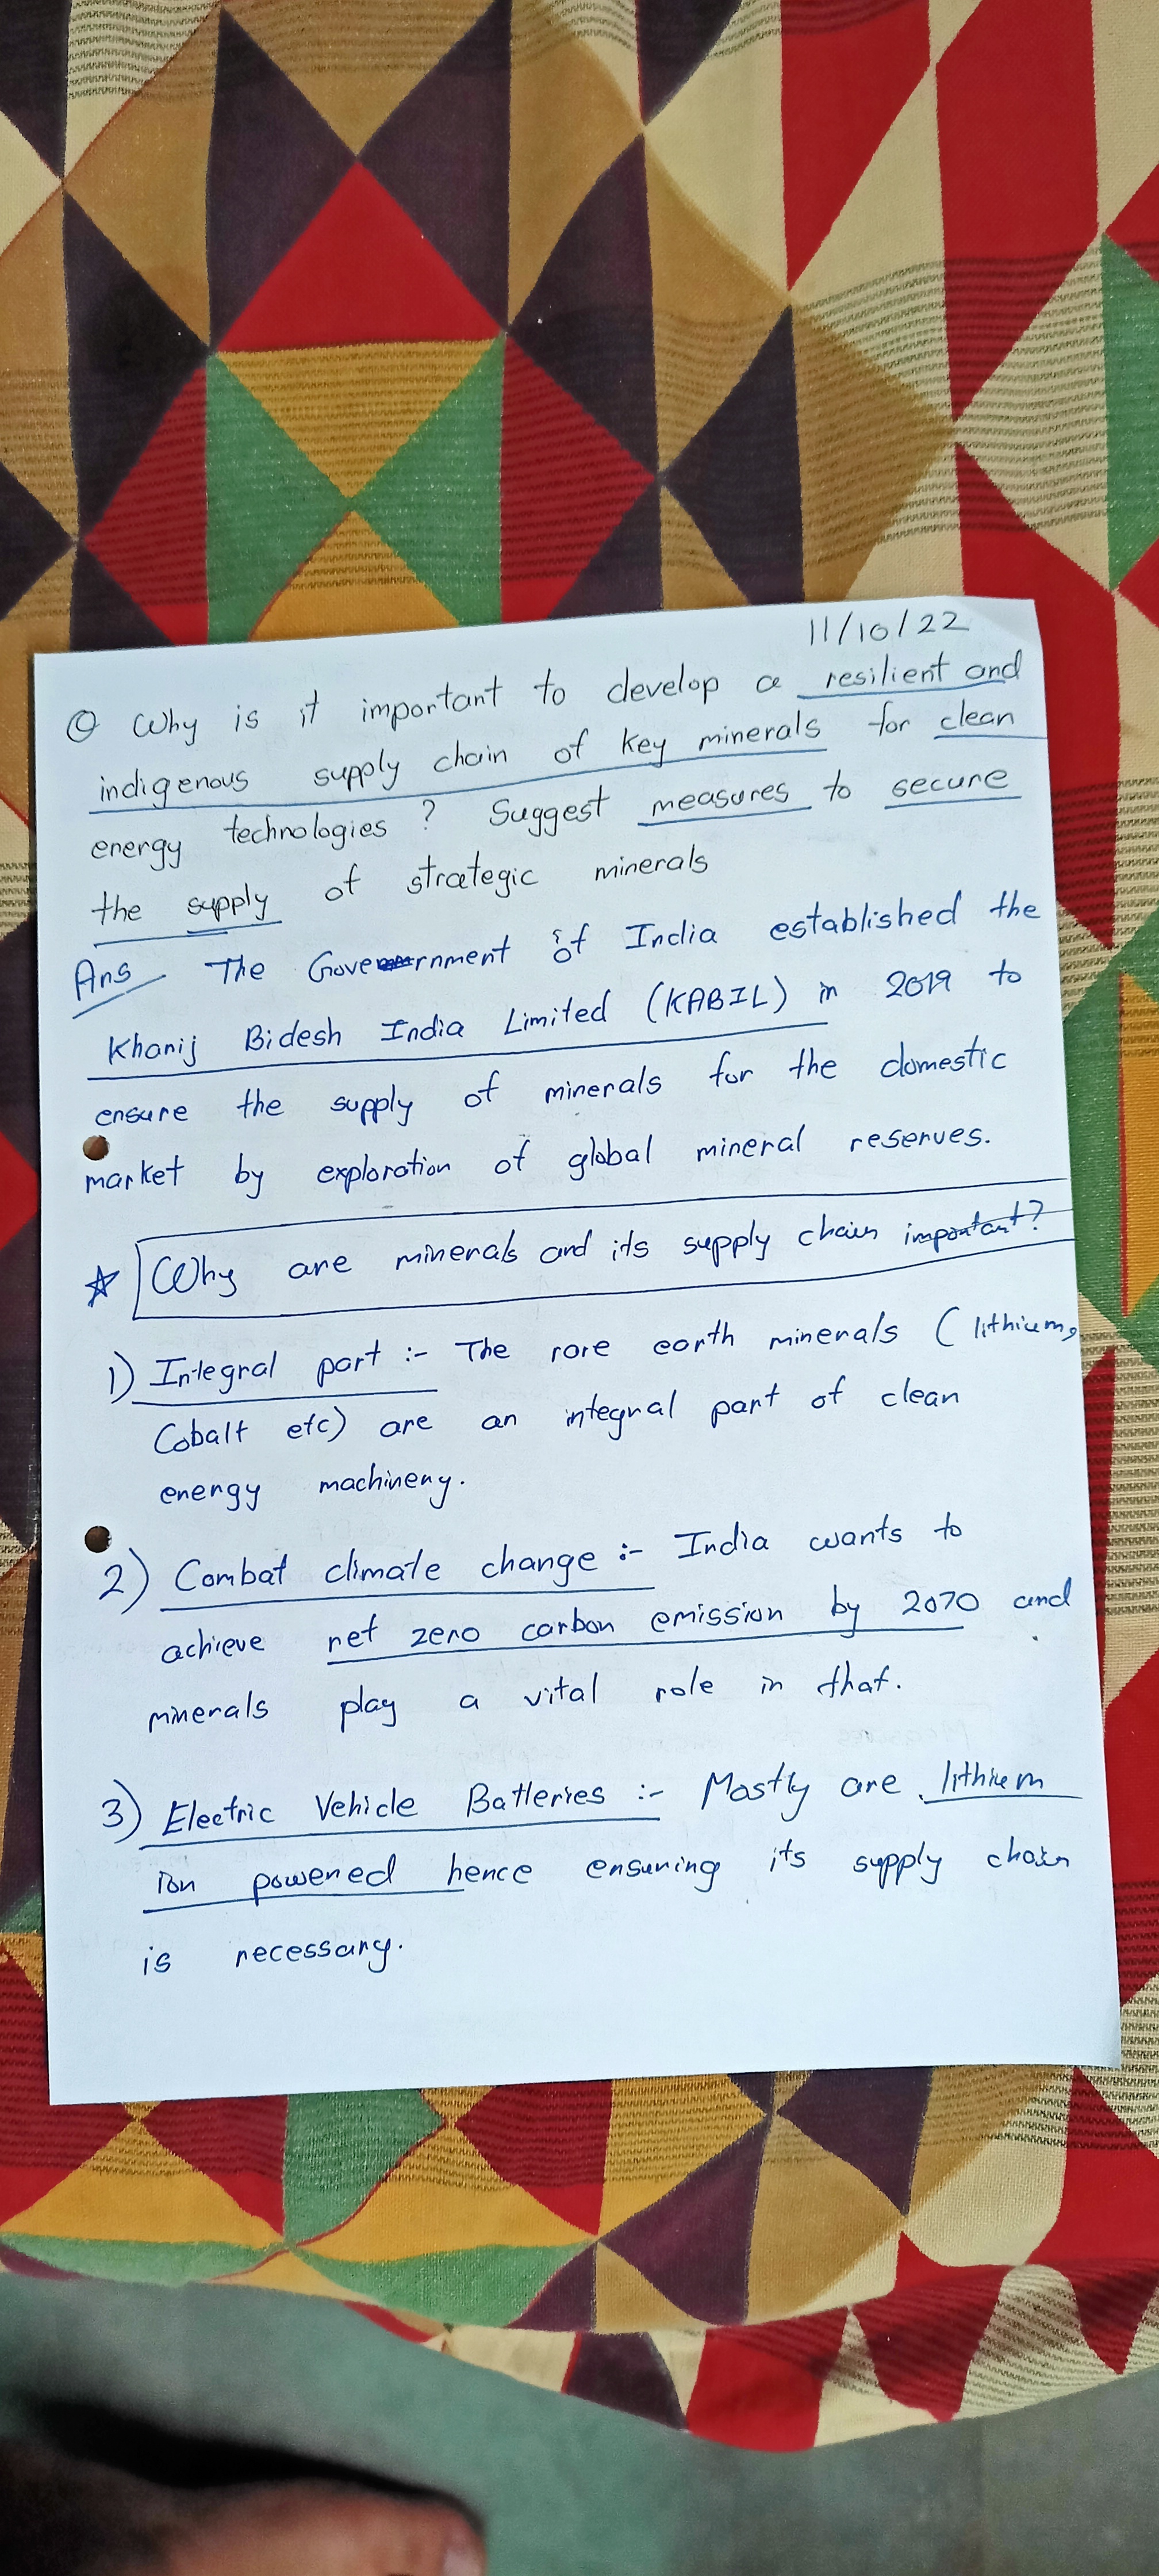 11/10/22
Q Why is it important to develop a resilient and
indigenous supply chain of key minerals for clean
energy technologies? Suggest measures to secure
the supply of strategic minerals
Ans The Government of India established the
Khanij Bidesh India Limited (KABIL) in 2019 to
ensure the supply of minerals for the domestic
market by exploration of global mineral reserves.
☆ Why are minerals and its supply chain important?
1) Integral part :- The rare earth minerals (lithium,
Cobalt etc) are an integral part of clean
energy machinery.
2) Combat climate change :- India wants to
achieve net zero carbon emission by 2070 and
minerals play a vital role in that.
3) Electric Vehicle Batteries :- Mostly are lithium
ion powered hence ensuring its supply chain
is necessary.